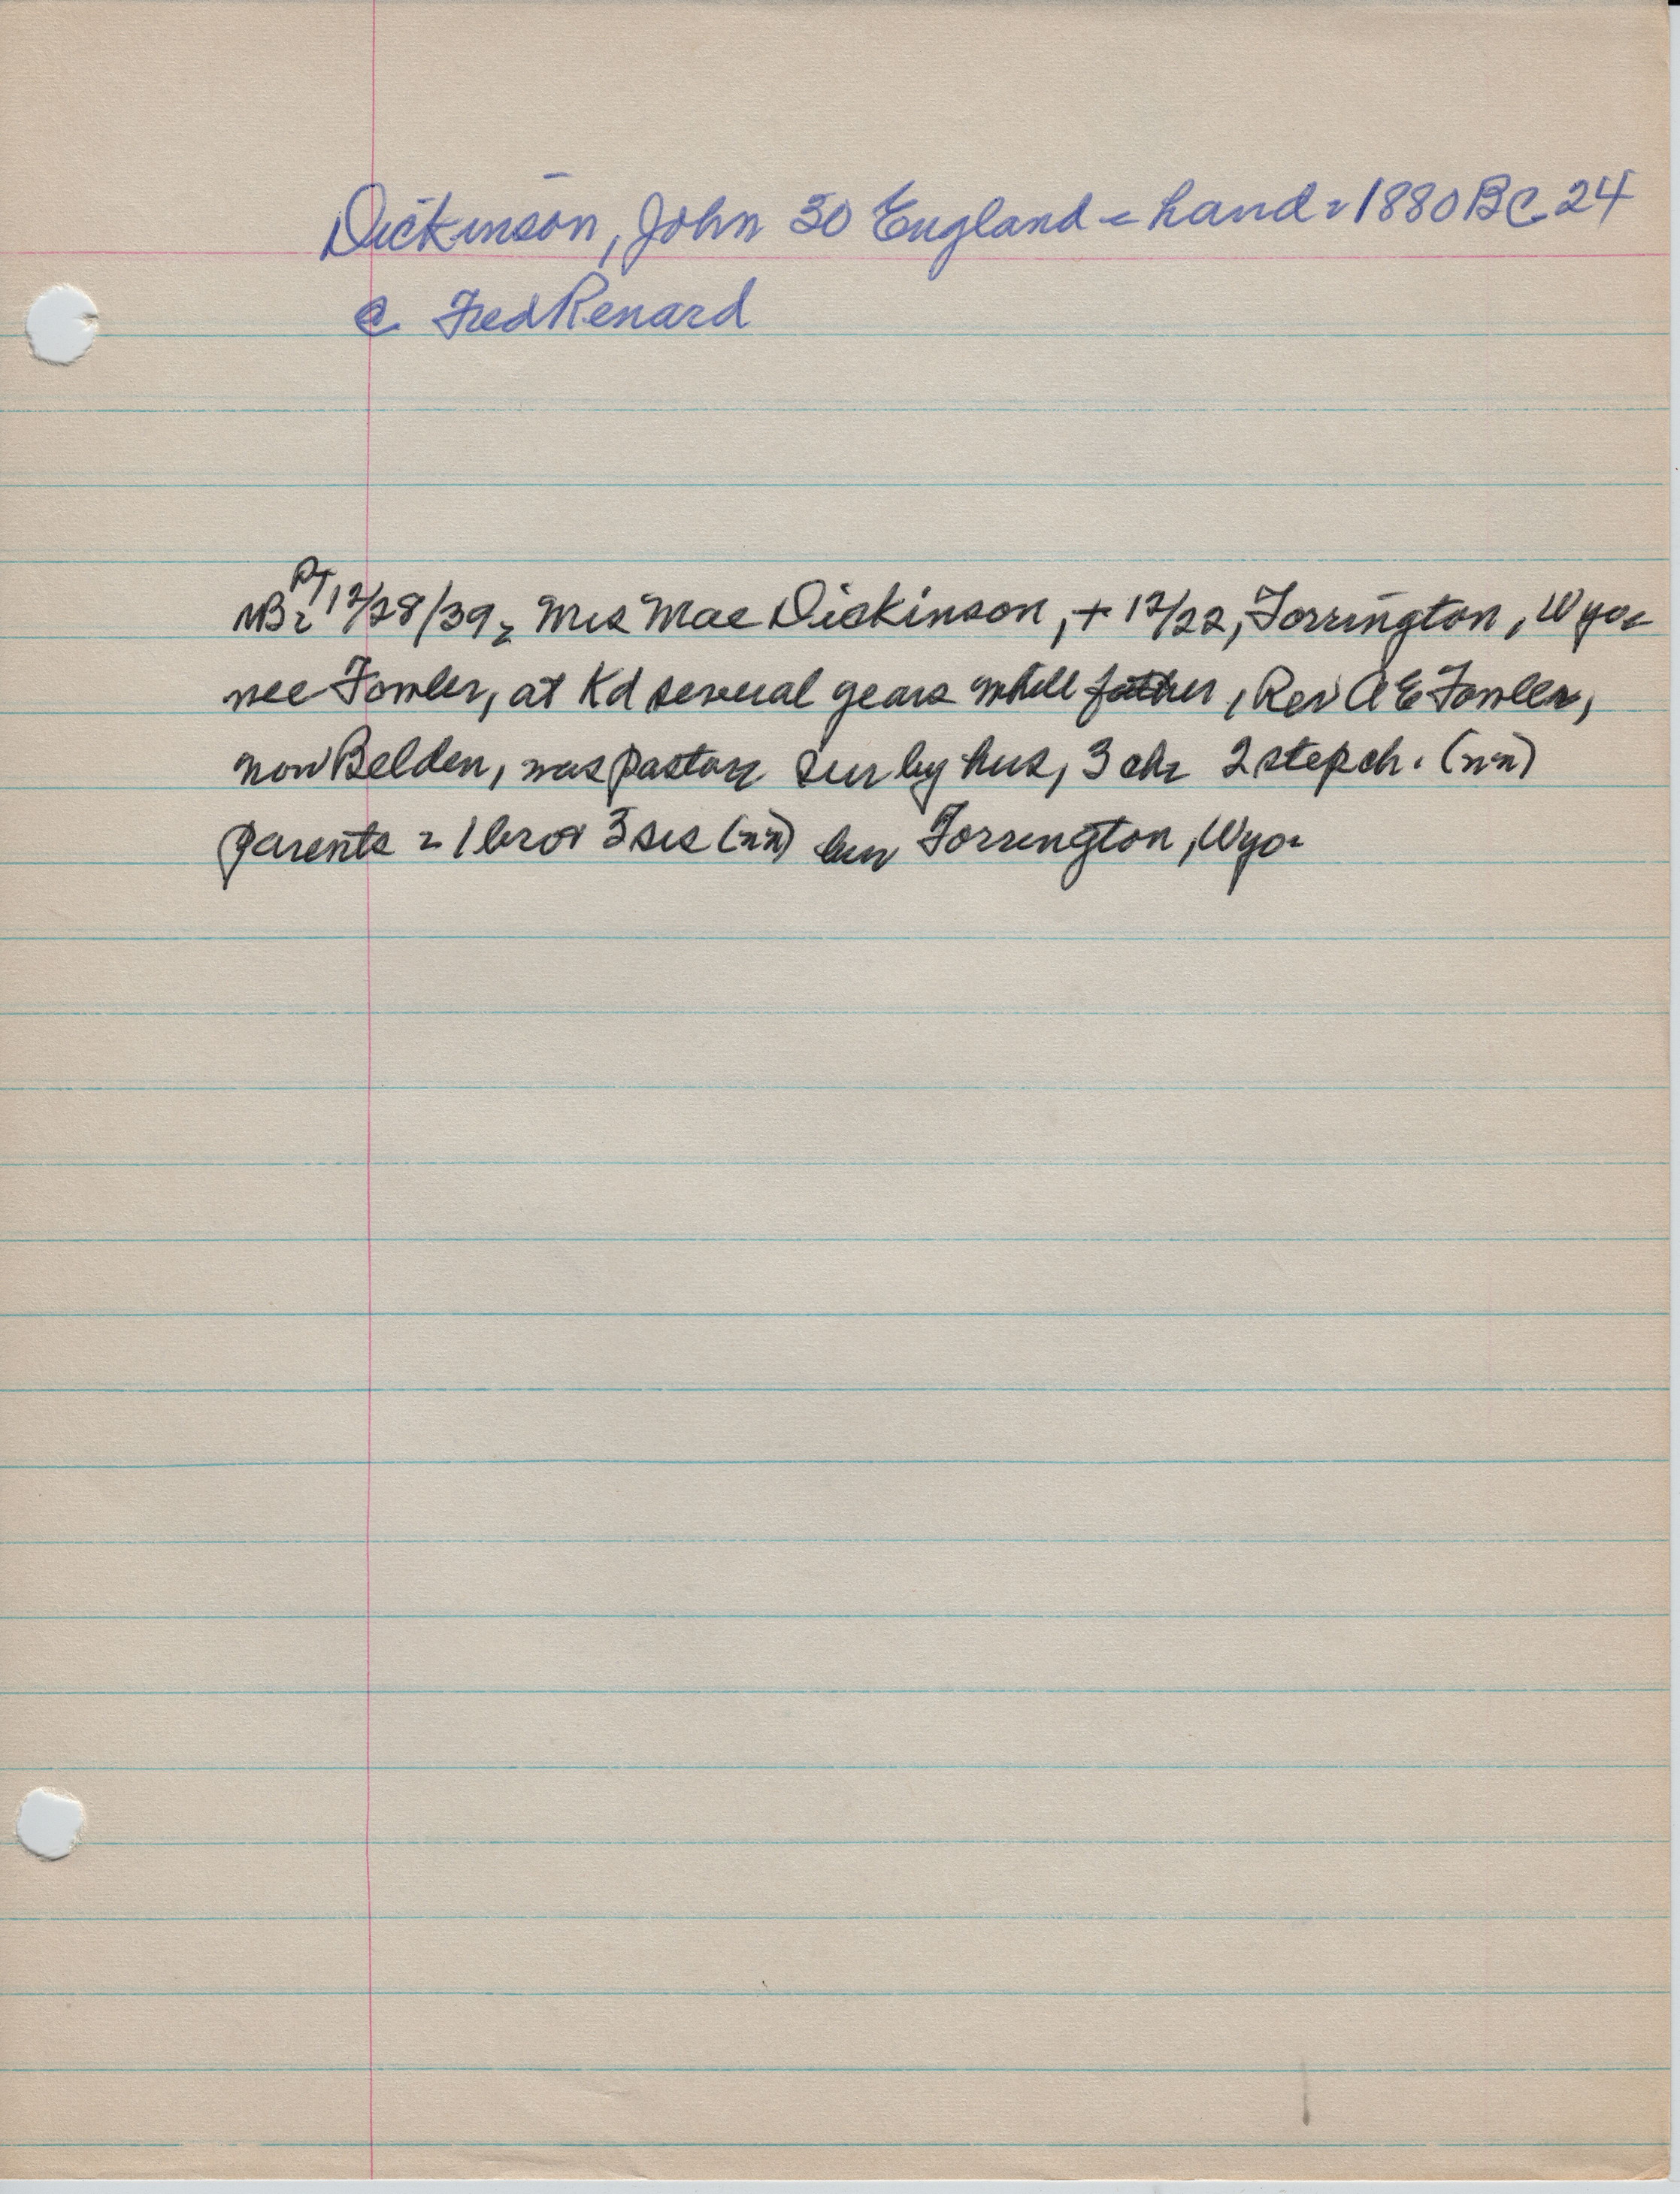 Dickinson, John 30 England = hand = 1880 BC 24
c Fred Renard
PT
NB = 12/28/39 = Mrs Mae Dickinson, + 12/22, Torrington, Wyo =
nee Fowler, at Kd several years while father, Rev A E Fowler,
now Belden, was pastor sur by hus, 3 ch = 2 step ch. (nn)
parents = 1 bro + 3 sis (nn) bur Torrington, Wyo =